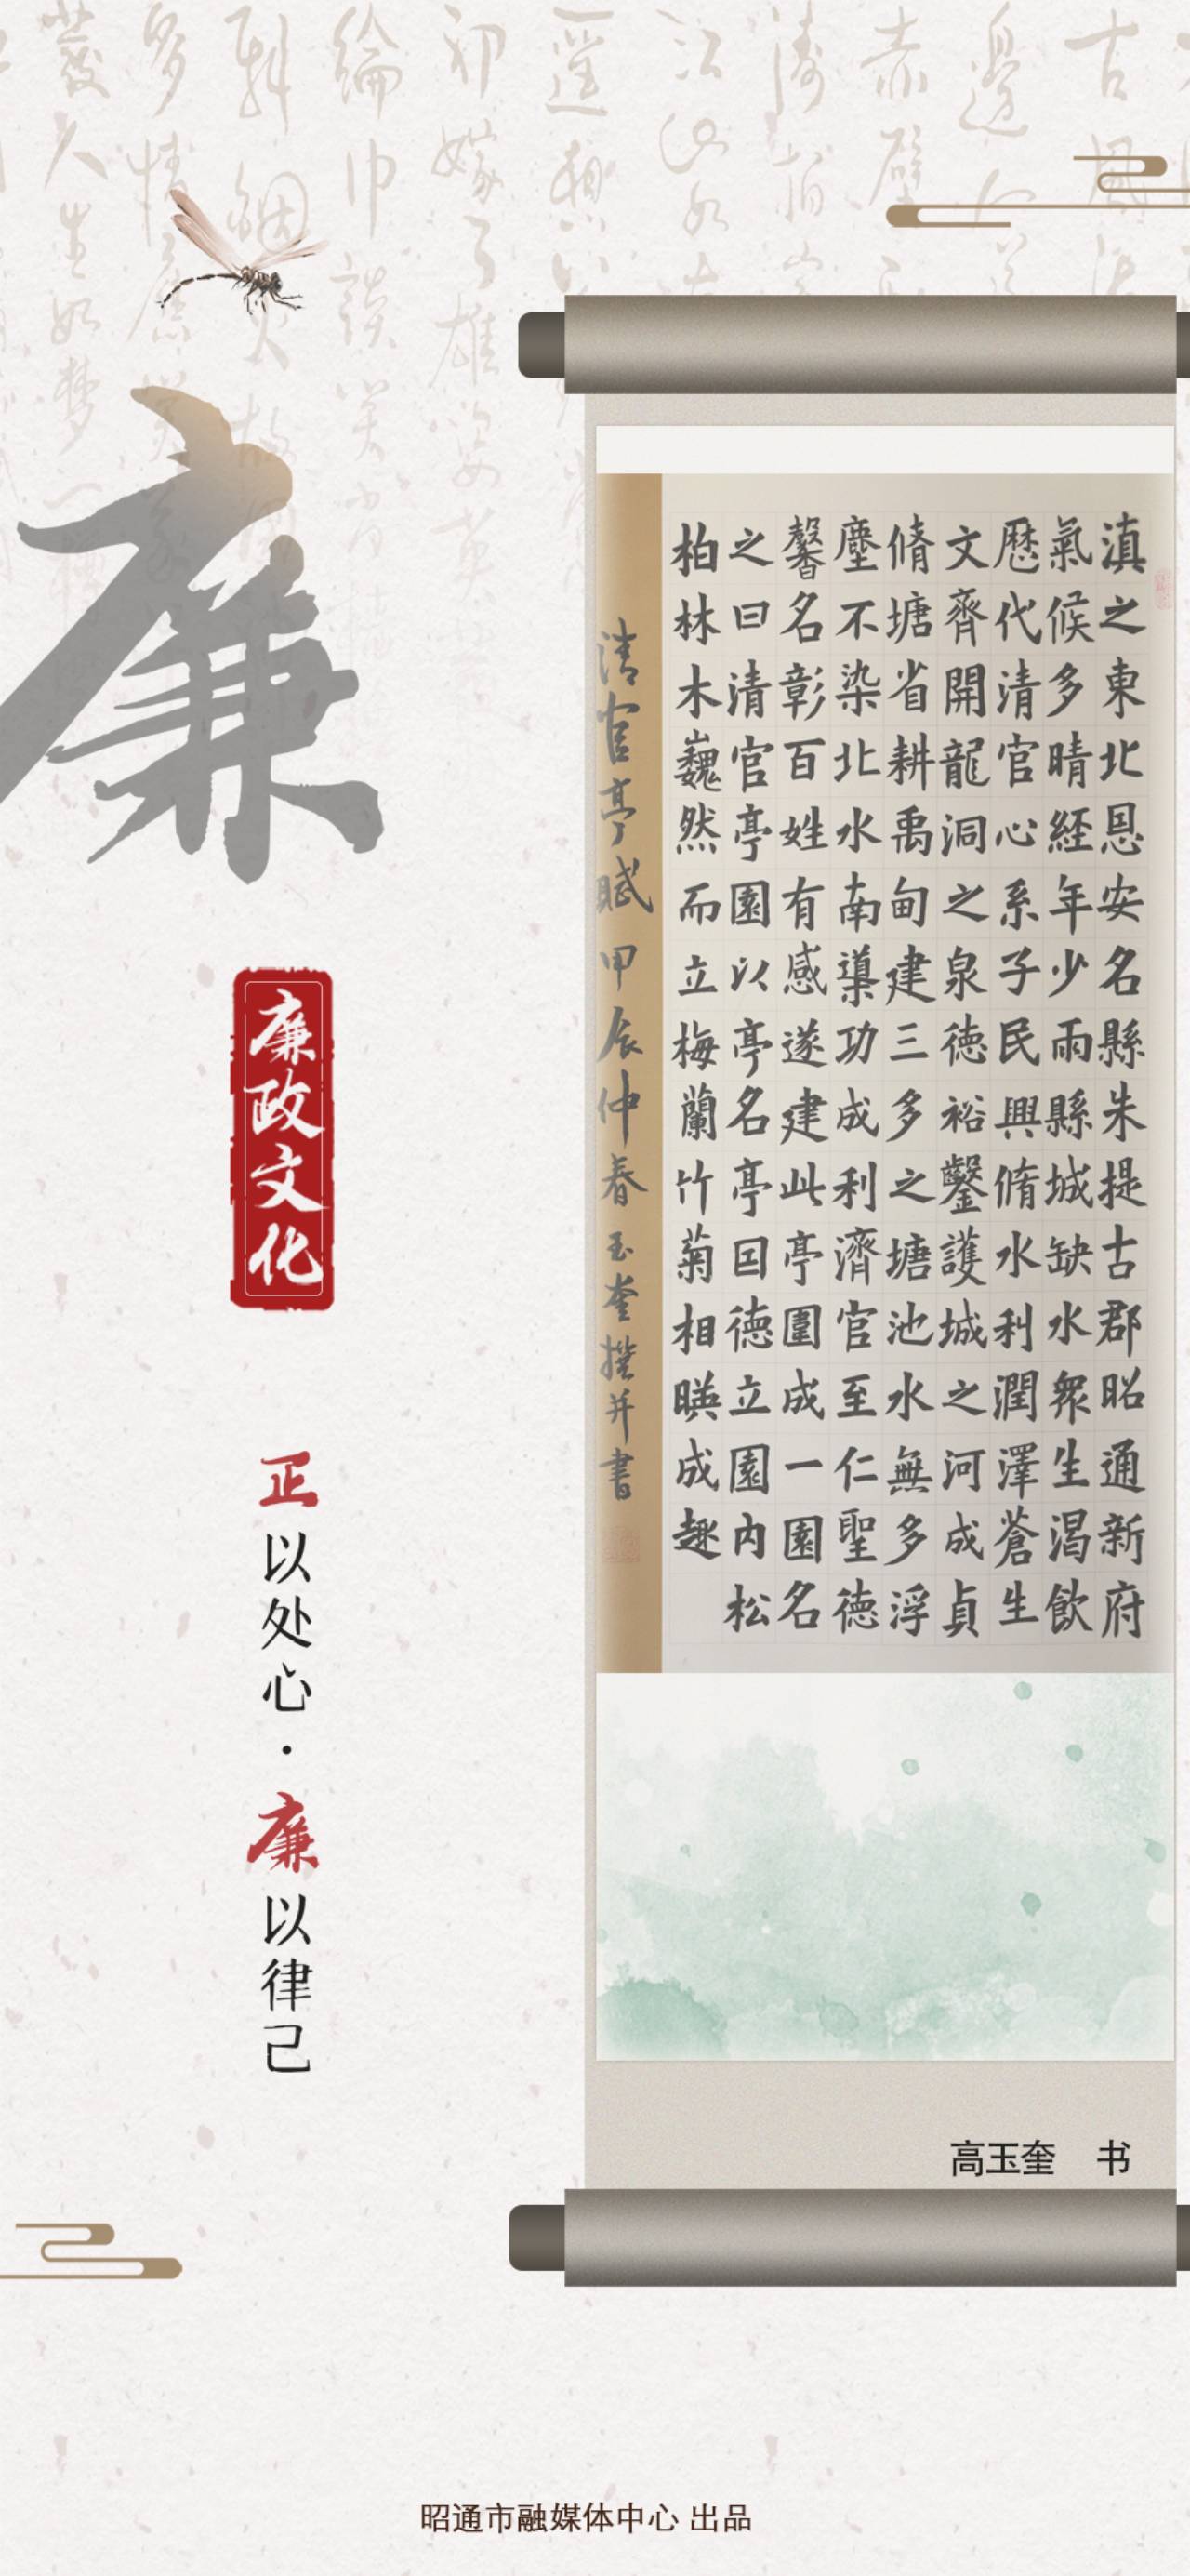 廉
廉政文化
正以处心·廉以律己
滇之東北恩安名縣朱提古郡昭通新府
氣候多晴經年少雨縣城缺水衆生渴飲
歷代清官心系子民興脩水利潤澤蒼生
文齊開龍洞之泉德裕鑿護城之河成貞
脩塘省耕禹甸建三多之塘池水無多浮
塵不染北水南導功成利濟官至仁聖德
馨名彰百姓有感遂建此亭圍成一園名
之曰清官亭園以亭名亭囙德立園內松
柏林木巍然而立梅蘭竹菊相暎成趣
清官亭賦 甲辰仲春 玉奎撰并書
高玉奎 书
昭通市融媒体中心 出品